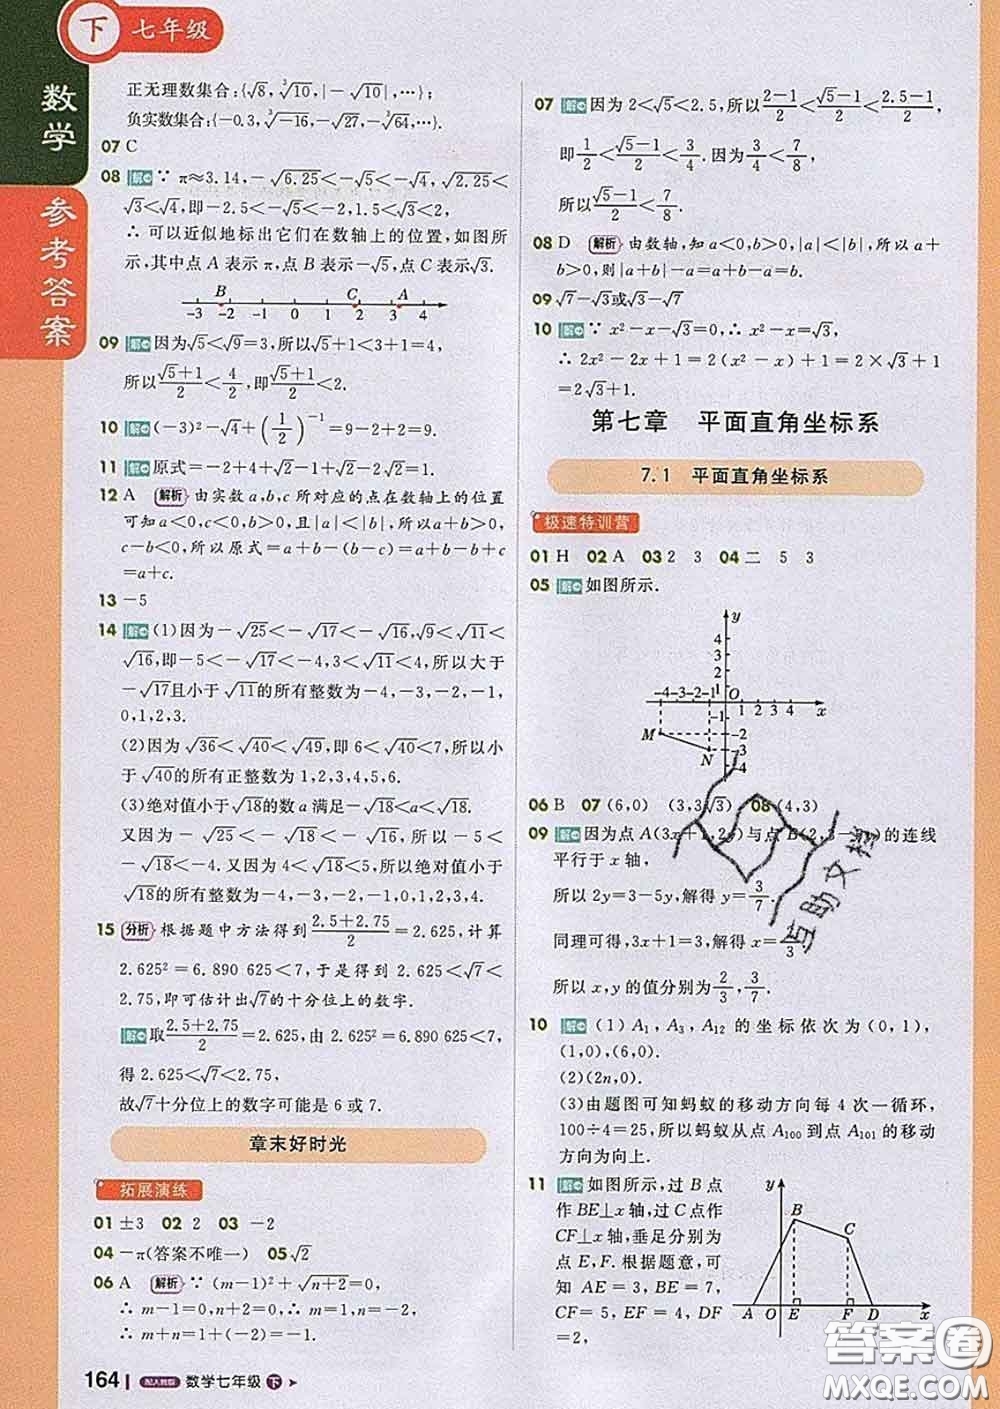 下 七年级
数学
参考答案
正无理数集合:{√8,∛10,|−√10|,⋯};
负实数集合:{−0.3,∛−16,−√27,−∛64,⋯}.
07 C
08 解 ∵ π≈3.14,−√6.25<−√5<−√4,√2.25<
√3<√4,即−2.5<−√5<−2,1.5<√3<2,
∴ 可以近似地标出它们在数轴上的位置,如图所
示,其中点 A 表示 π,点 B 表示−√5,点 C 表示√3.
B C A
−3 −2 −1 0 1 2 3 4
09 解 因为√5<√9=3,所以√5+1<3+1=4,
所以(√5+1)/2<4/2,即(√5+1)/2<2.
10 解 (−3)²−√4+(1/2)⁻¹=9−2+2=9.
11 解 原式=−2+4+√2−1−√2+1=2.
12 A 解析 由实数 a,b,c 所对应的点在数轴上的位置
可知 a<0,c<0,b>0,且|a|<|b|,所以 a+b>0,
c−b<0,所以原式=a+b−(b−c)=a+b−b+c
=a+c.
13 −5
14 解 (1)因为−√25<−√17<−√16,√9<√11<
√16,即−5<−√17<−4,3<√11<4,所以大于
−√17且小于√11的所有整数为−4,−3,−2,−1,
0,1,2,3.
(2)因为√36<√40<√49,即 6<√40<7,所以小
于√40的所有正整数为 1,2,3,4,5,6.
(3)绝对值小于√18的数 a 满足−√18<a<√18.
又因为−√25<−√18<−√16,所以−5<
−√18<−4.又因为 4<√18<5,所以绝对值小于
√18的所有整数为−4,−3,−2,−1,0,1,2,3,4.
15 分析 根据题中方法得到(2.5+2.75)/2=2.625,计算
2.625²=6.890 625<7,于是得到 2.625<√7<
2.75,即可估计出√7的十分位上的数字.
解 取(2.5+2.75)/2=2.625,由 2.625²=6.890 625<7,
得 2.625<√7<2.75,
故√7十分位上的数字可能是 6 或 7.
章末好时光
拓展演练
01 ±3 02 2 03 −2
04 −π(答案不唯一) 05 √2
06 A 解析 ∵ (m−1)²+√(n+2)=0,
∴ m−1=0,n+2=0,∴ m=1,n=−2,
∴ m+n=1+(−2)=−1.
164 配人教版 数学七年级 下
07 解 因为 2<√5<2.5,所以(2−1)/2<(√5−1)/2<(2.5−1)/2,
即1/2<(√5−1)/2<3/4.因为3/4<7/8,
所以(√5−1)/2<7/8.
08 D 解析 由数轴,知 a<0,b>0,|a|<|b|,所以 a+
b>0,则|a+b|−a=a+b−a=b.
09 √7−√3或√3−√7
10 解 ∵ x²−x−√3=0,∴ x²−x=√3,
∴ 2x²−2x+1=2(x²−x)+1=2×√3+1
=2√3+1.
第七章 平面直角坐标系
7.1 平面直角坐标系
极速特训营
01 H 02 A 03 2 3 04 二 5 3
05 解 如图所示.
y
4
3
2
1
−4 −3 −2 −1 O 1 2 3 4 x
−1
M −2
N −3
−4
06 B 07 (6,0) (3,3√3) 08 (4,3)
09 解 因为点 A(3x+1,2y)与点 B(2,3−5y)的连线
平行于 x 轴,
所以 2y=3−5y,解得 y=3/7.
同理可得,3x+1=3,解得 x=2/3.
所以 x,y 的值分别为2/3,3/7.
10 解 (1) A₁,A₃,A₁₂ 的坐标依次为(0,1),
(1,0),(6,0).
(2)(2n,0).
(3)由题图可知蚂蚁的移动方向每 4 次一循环,
100÷4=25,所以蚂蚁从点 A₁₀₀ 到点 A₁₀₁ 的移动
方向为向上.
11 解 如图所示,过 B 点
作 BE⊥x 轴,过 C 点作
CF⊥x 轴,垂足分别为
点 E,F.根据题意,可
知 AE=3,BE=7,
CF=5,EF=4,DF
=2,
y
B
C
A O E F D x
互助文档
答案圈
MXQE.COM